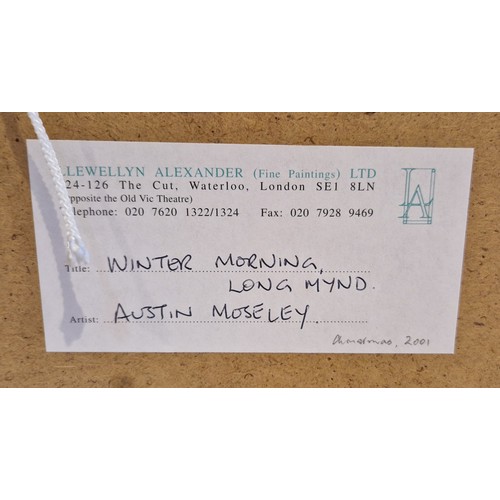 LLEWELLYN ALEXANDER (Fine Paintings) LTD
124-126 The Cut, Waterloo, London SE1 8LN
(opposite the Old Vic Theatre)
Telephone: 020 7620 1322/1324 Fax: 020 7928 9469
LA
Title: WINTER MORNING,
LONG MYND.
Artist: AUSTIN MOSELEY.
Christmas, 2001